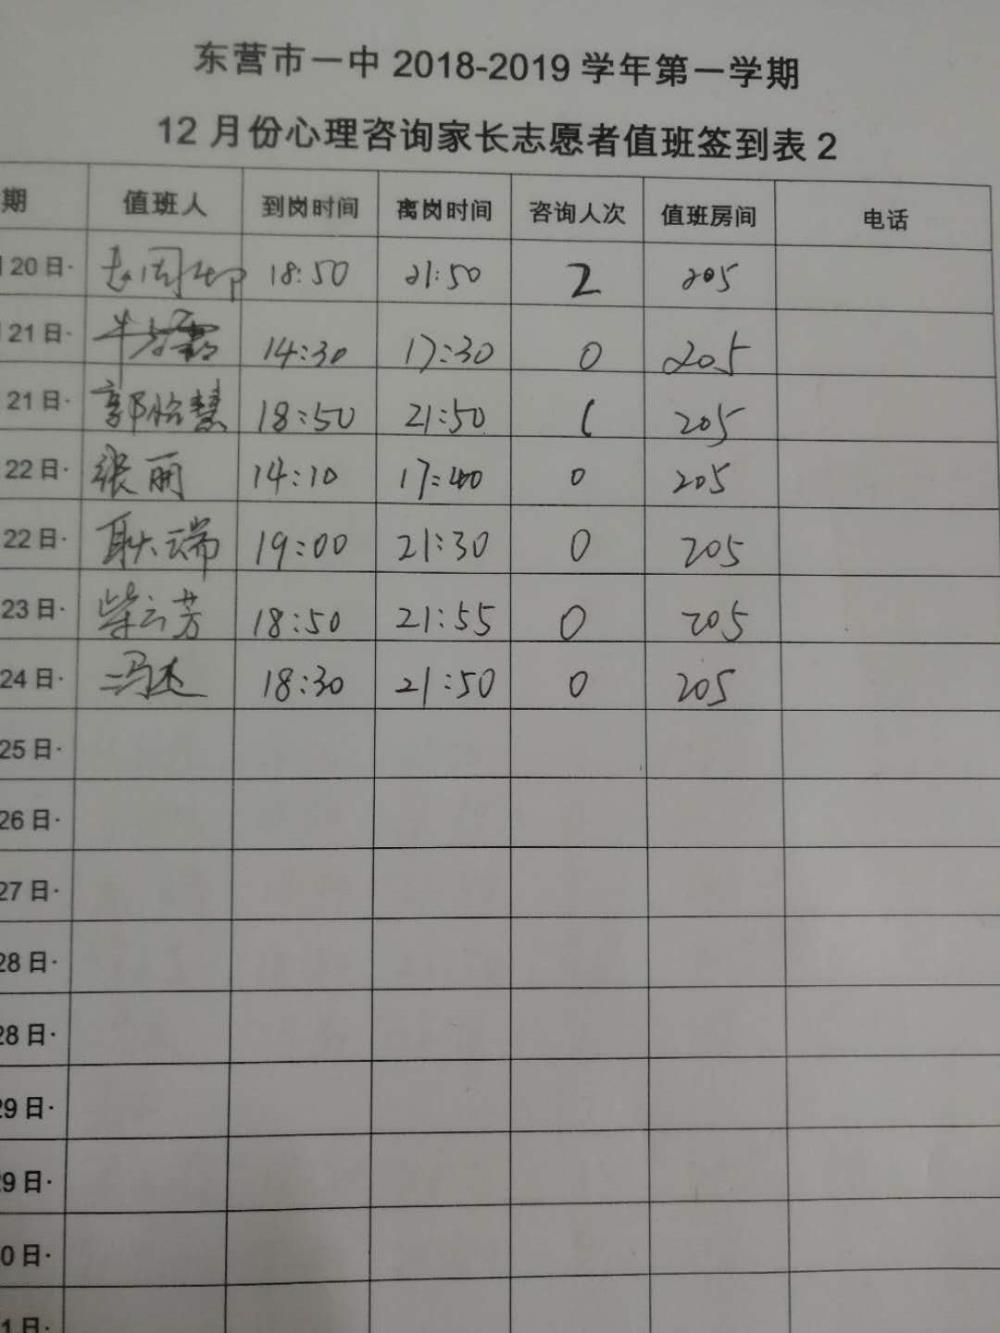 东营市一中 2018-2019 学年第一学期
12 月份心理咨询家长志愿者值班签到表 2
期 值班人 到岗时间 离岗时间 咨询人次 值班房间 电话
20 日· 18:50 21:50 2 205
21 日· 牛 14:30 17:30 0 205
21 日· 郭怡慧 18:50 21:50 1 205
22 日· 张丽 14:10 17:40 0 205
22 日· 耿云端 19:00 21:30 0 205
23 日· 柴云芳 18:50 21:55 0 205
24 日· 冯杰 18:30 21:50 0 205
25 日·
26 日·
27 日·
28 日·
28 日·
29 日·
9 日·
0 日·
1 日·